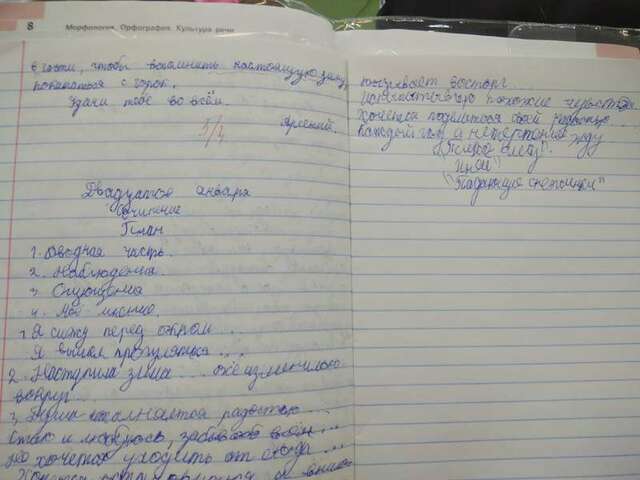 8 Морфология. Орфография. Культура речи
в гости, чтобы вспомнить настоящую зиму,
покататься с горок.
Удачи тебе во всём.
Арсений.
5/4
Двадцатое января
Сочинение
План
1. Вводная часть.
2. Наблюдения.
3. Ощущения
4. Моё мнение.
1. Я сижу перед окном ...
Я вышел прогуляться ...
2. Наступила зима ... всё изменилось
вокруг ...
3. Душа наполняется радостью ...
Стою и любуюсь, забывая всём ...
Не хочется уходить от сюда ...
восторг ...
похожие
Хочется поделиться своей радостью ...
Каждый год с нетерпением жду
"Первый снег"
"Иней"
"Падающие снежинки"